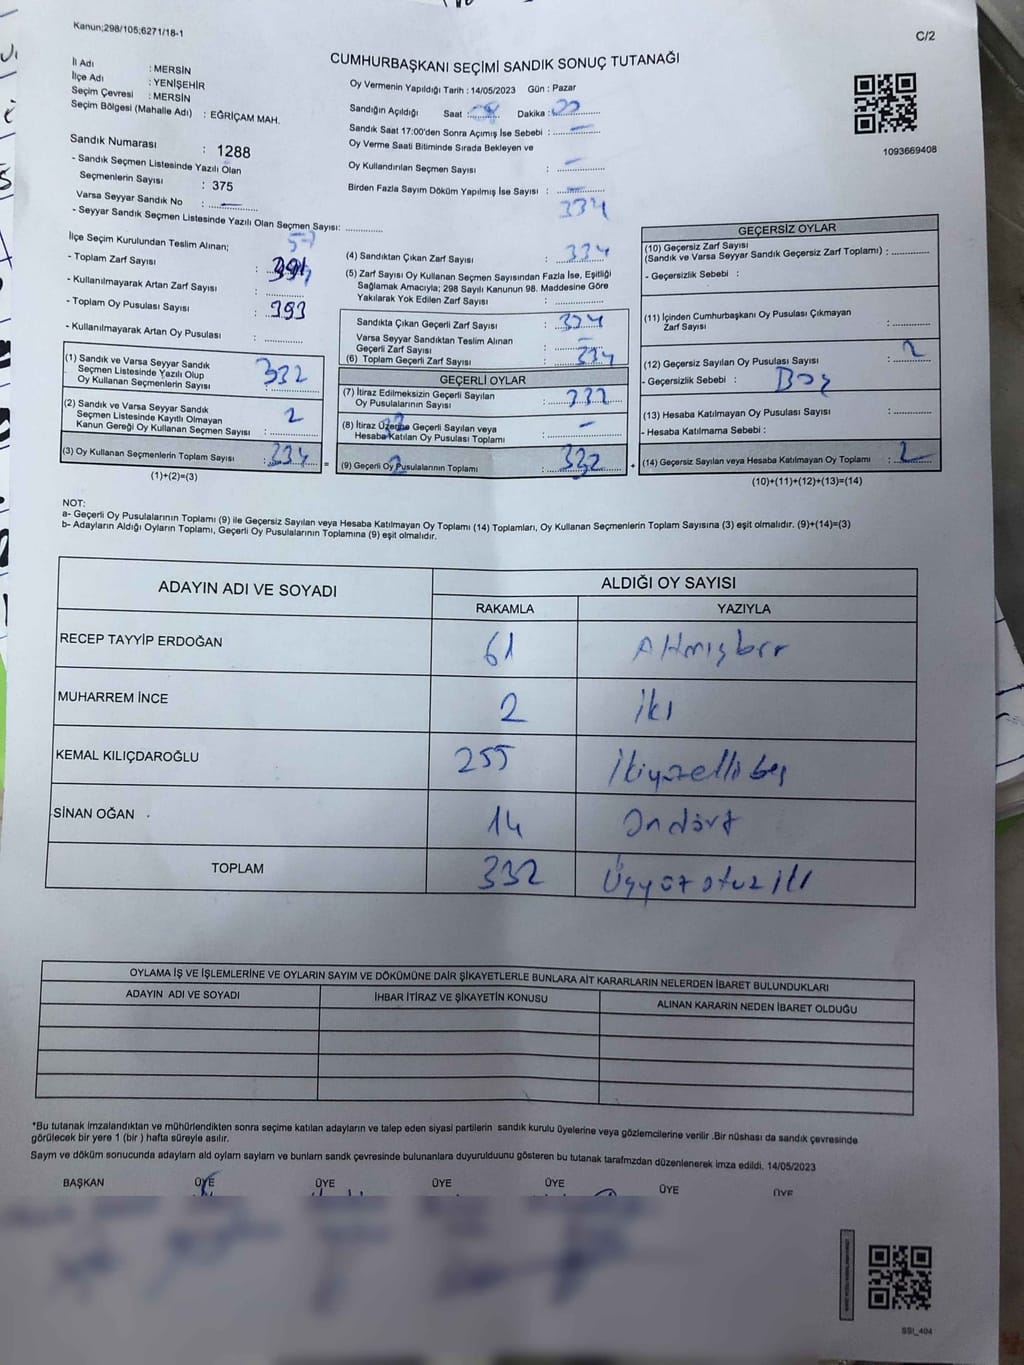 Kanun;298/105;6271/18-1
C/2
CUMHURBAŞKANI SEÇİMİ SANDIK SONUÇ TUTANAĞI
İl Adı : MERSİN
İlçe Adı : YENİŞEHİR
Seçim Çevresi : MERSİN
Seçim Bölgesi (Mahalle Adı) : EĞRİÇAM MAH.
Sandık Numarası : 1288
- Sandık Seçmen Listesinde Yazılı Olan
Seçmenlerin Sayısı : 375
Varsa Seyyar Sandık No : —
- Seyyar Sandık Seçmen Listesinde Yazılı Olan Seçmen Sayısı: ..............
Oy Vermenin Yapıldığı Tarih : 14/05/2023 Gün : Pazar
Sandığın Açıldığı Saat : Dakika :
Sandık Saat 17:00'den Sonra Açımış İse Sebebi : —
Oy Verme Saati Bitiminde Sırada Bekleyen ve
Oy Kullandırılan Seçmen Sayısı : —
Birden Fazla Sayım Döküm Yapılmış İse Sayısı : —
334
1093669408
İlçe Seçim Kurulundan Teslim Alınan;
- Toplam Zarf Sayısı :
- Kullanılmayarak Artan Zarf Sayısı : ..............
- Toplam Oy Pusulası Sayısı : 393
- Kullanılmayarak Artan Oy Pusulası : ..............
(1) Sandık ve Varsa Seyyar Sandık
Seçmen Listesinde Yazılı Olup
Oy Kullanan Seçmenlerin Sayısı : 332
(2) Sandık ve Varsa Seyyar Sandık
Seçmen Listesinde Kayıtlı Olmayan
Kanun Gereği Oy Kullanan Seçmen Sayısı : 2
(3) Oy Kullanan Seçmenlerin Toplam Sayısı : 334
(1)+(2)=(3)
(4) Sandıktan Çıkan Zarf Sayısı : 334
(5) Zarf Sayısı Oy Kullanan Seçmen Sayısından Fazla İse, Eşitliği
Sağlamak Amacıyla; 298 Sayılı Kanunun 98. Maddesine Göre
Yakılarak Yok Edilen Zarf Sayısı : ..............
Sandıkta Çıkan Geçerli Zarf Sayısı : 334
Varsa Seyyar Sandıktan Teslim Alınan
Geçerli Zarf Sayısı : —
(6) Toplam Geçerli Zarf Sayısı : 334
GEÇERLİ OYLAR
(7) İtiraz Edilmeksizin Geçerli Sayılan
Oy Pusulalarının Sayısı : 332
(8) İtiraz Üzerine Geçerli Sayılan veya
Hesaba Katılan Oy Pusulası Toplamı : —
= (9) Geçerli Oy Pusulalarının Toplamı : 332
GEÇERSİZ OYLAR
(10) Geçersiz Zarf Sayısı
(Sandık ve Varsa Seyyar Sandık Geçersiz Zarf Toplamı) : ..............
- Geçersizlik Sebebi :
(11) İçinden Cumhurbaşkanı Oy Pusulası Çıkmayan
Zarf Sayısı : ..............
(12) Geçersiz Sayılan Oy Pusulası Sayısı : 2
- Geçersizlik Sebebi : Boş
(13) Hesaba Katılmayan Oy Pusulası Sayısı : ..............
- Hesaba Katılmama Sebebi :
+ (14) Geçersiz Sayılan veya Hesaba Katılmayan Oy Toplamı : 2
(10)+(11)+(12)+(13)=(14)
NOT:
a- Geçerli Oy Pusulalarının Toplamı (9) ile Geçersiz Sayılan veya Hesaba Katılmayan Oy Toplamı (14) Toplamları, Oy Kullanan Seçmenlerin Toplam Sayısına (3) eşit olmalıdır. (9)+(14)=(3)
b- Adayların Aldığı Oyların Toplamı, Geçerli Oy Pusulalarının Toplamına (9) eşit olmalıdır.
ADAYIN ADI VE SOYADI ALDIĞI OY SAYISI
RAKAMLA YAZIYLA
RECEP TAYYİP ERDOĞAN 61 Altmışbir
MUHARREM İNCE 2 iki
KEMAL KILIÇDAROĞLU 255 ikiyüzelli beş
SİNAN OĞAN 14 Ondört
TOPLAM 332 Üçyüz otuz iki
OYLAMA İŞ VE İŞLEMLERİNE VE OYLARIN SAYIM VE DÖKÜMÜNE DAİR ŞİKAYETLERLE BUNLARA AİT KARARLARIN NELERDEN İBARET BULUNDUKLARI
ADAYIN ADI VE SOYADI İHBAR İTİRAZ VE ŞİKAYETİN KONUSU ALINAN KARARIN NEDEN İBARET OLDUĞU
*Bu tutanak imzalandıktan ve mühürlendikten sonra seçime katılan adayların ve talep eden siyasi partilerin sandık kurulu üyelerine veya gözlemcilerine verilir .Bir nüshası da sandık çevresinde
görülecek bir yere 1 (bir ) hafta süreyle asılır.
Sayım ve döküm sonucunda adayların ald oyların sayların ve bunların sandk çevresinde bulunanlara duyurulduunu gösteren bu tutanak tarafmzdan düzenlenerek imza edildi. 14/05/2023
BAŞKAN ÜYE ÜYE ÜYE ÜYE ÜYE ÜYE
SSI_404